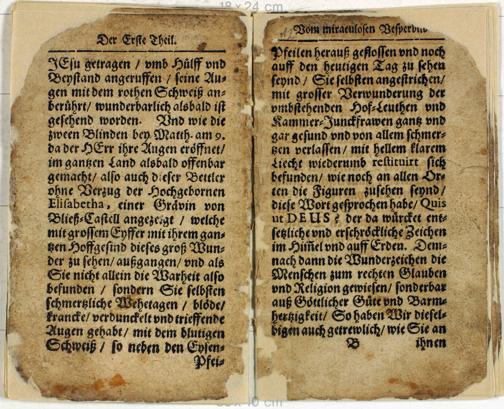 18 x 24 cm
Der Erste Theil.
JEsu getragen / vmb Hülff vnd
Beystand angeruffen / seine Au-
gen mit dem rothen Schweiß an-
berührt / wunderbarlich alsbald ist
gesehend worden. Vnd wie die
zween Blinden bey Matth. am 9.
da der HErr ihre Augen eröffnet /
im gantzen Land alsbald offenbar
gemacht / also auch dieser Bettler
ohne Verzug der Hochgebornen
Elisabetha, einer Grävin von
Bließ-Castell angezeigt / welche
mit grossem Eyffer mit ihrem gan-
tzen Hoffgesind dieses groß Wun-
der zu sehen / außgangen / vnd als
Sie nicht allein die Warheit also
befunden / sondern Sie selbsten
schmertzliche Wehetagen / blöde /
krancke / verdunckelt vnd trieffende
Augen gehabt / mit dem blutigen
Schweiß / so neben den Eysen-
Pfei-
Vom miraculosen Vesperbild
Pfeilen herauß geflossen vnd noch
auff den heutigen Tag zu sehen
seynd / Sie selbsten angestrichen /
mit grosser Verwunderung der
vmbstehenden Hoff-Leuthen vnd
Kammer-Junckfrawen gantz vnd
gar gesund vnd von allem schmer-
tzen verlassen / mit hellem klarem
Liecht wiederumb restituirt sich
befunden / wie noch an allen Or-
ten die Figuren zusehen seynd /
diese Wort gesprochen habe / Quis
ut DEUS? der da würcket ent-
setzliche vnd erschröckliche Zeichen
im Himmel vnd auff Erden. Dem-
nach dann die Wunderzeichen die
Menschen zum rechten Glauben
vnd Religion gewiesen / sonderbar
auß Göttlicher Güte vnd Barm-
hertzigkeit / So haben Wir diesel-
bigen auch getrewlich / wie Sie an
B ihnen